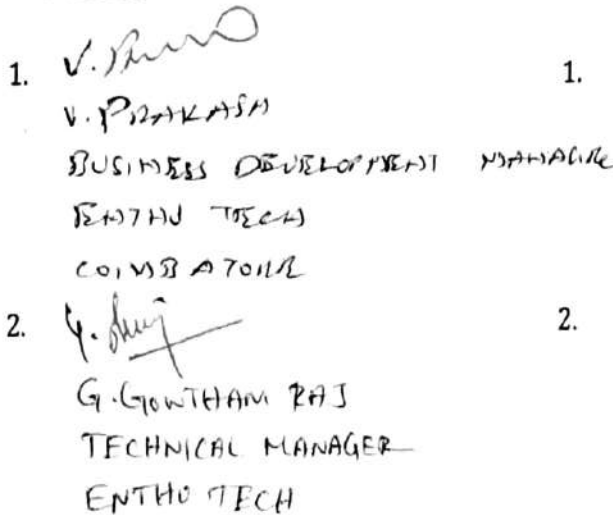 1. V. 1.
V. PRAKASH
BUSINESS DEVELOPMENT MANAGER
ENTHU TECH
COIMBATORE
2. G. 2.
G. GOWTHAM RAJ
TECHNICAL MANAGER
ENTHU TECH